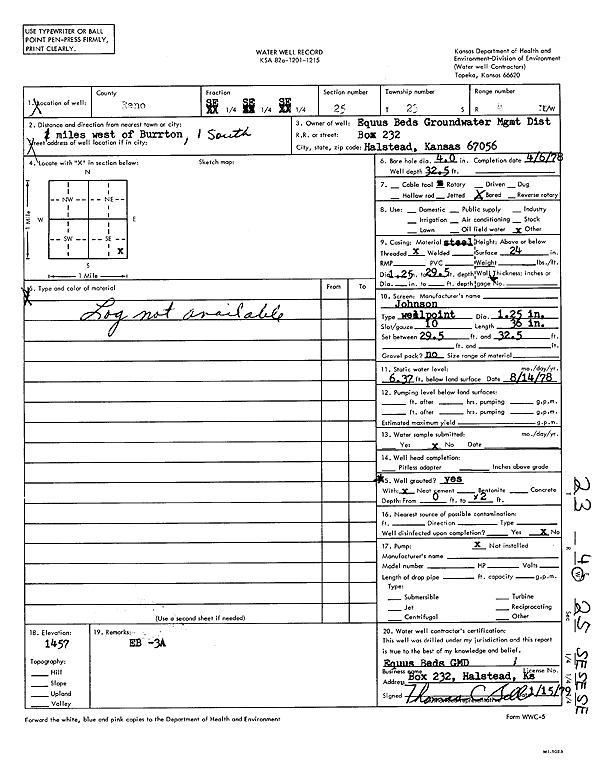 USE TYPEWRITER OR BALL
POINT PEN-PRESS FIRMLY,
PRINT CLEARLY.
WATER WELL RECORD
KSA 82a-1201-1215
Kansas Department of Health and
Environment-Division of Environment
(Water well Contractors)
Topeka, Kansas 66620
1. Location of well:
County
Reno
Fraction
SE 1/4 SE 1/4 SE 1/4
Section number
25
Township number
T 23 S
Range number
R E/W
2. Distance and direction from nearest town or city:
miles west of Burrton, 1 South
Street address of well location if in city:
3. Owner of well: Equus Beds Groundwater Mgmt Dist
R.R. or street: Box 232
City, state, zip code: Halstead, Kansas 67056
4. Locate with "X" in section below:
Sketch map:
N
NW NE
W E
SW SE
X
S
1 Mile
1 Mile
6. Bore hole dia. 4.0 in. Completion date 4/6/78
Well depth 32.5 ft.
7. Cable tool Rotary Driven Dug
Hollow rod Jetted X Bored Reverse rotary
8. Use: Domestic Public supply Industry
Irrigation Air conditioning Stock
Lawn Oil field water X Other
9. Casing: Material steel Height: Above or below
Threaded X Welded Surface 24 in.
RMP PVC Weight lbs./ft.
Dia. 1.25 in. to 29.5 ft. depth Wall Thickness: inches or
Dia. in. to ft. depth gage No.
5. Type and color of material
From To
Log not available
10. Screen: Manufacturer's name
Johnson
Type wellpoint Dia. 1.25 in.
Slot/gauze 10 Length 36 in.
Set between 29.5 ft. and 32.5 ft.
ft. and ft.
Gravel pack? no Size range of material
11. Static water level: mo./day/yr.
6.37 ft. below land surface Date 8/14/78
12. Pumping level below land surfaces:
ft. after hrs. pumping g.p.m.
ft. after hrs. pumping g.p.m.
Estimated maximum yield g.p.m.
13. Water sample submitted: mo./day/yr.
Yes X No Date
14. Well head completion:
Pitless adapter Inches above grade
15. Well grouted? yes
With: X Neat cement Bentonite Concrete
Depth: From 0 ft. to 2 ft.
16. Nearest source of possible contamination:
ft. Direction Type
Well disinfected upon completion? Yes X No
17. Pump: X Not installed
Manufacturer's name
Model number HP Volts
Length of drop pipe ft. capacity g.p.m.
Type:
Submersible Turbine
Jet Reciprocating
Centrifugal Other
(Use a second sheet if needed)
18. Elevation:
1457
Topography:
Hill
Slope
Upland
Valley
19. Remarks:
EB -3A
20. Water well contractor's certification:
This well was drilled under my jurisdiction and this report
is true to the best of my knowledge and belief.
Equus Beds GMD
Business name License No.
Address Box 232, Halstead, Ks
Signed 1/15/79
Authorized representative
Forward the white, blue and pink copies to the Department of Health and Environment
Form WWC-5
T 23
R 4 W
Sec 25
SE SE SE
1/4 1/4 1/4